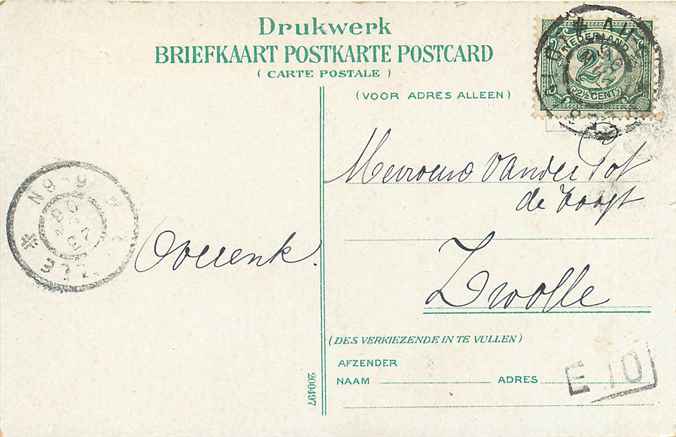 Drukwerk
BRIEFKAART POSTKARTE POSTCARD
( CARTE POSTALE )
(VOOR ADRES ALLEEN)
NEDERLAND
2½
CENT
Mevrouw Van der Pot
de Voogt
Zwolle
(DES VERKIEZENDE IN TE VULLEN)
AFZENDER
NAAM
ADRES
E 10
200497